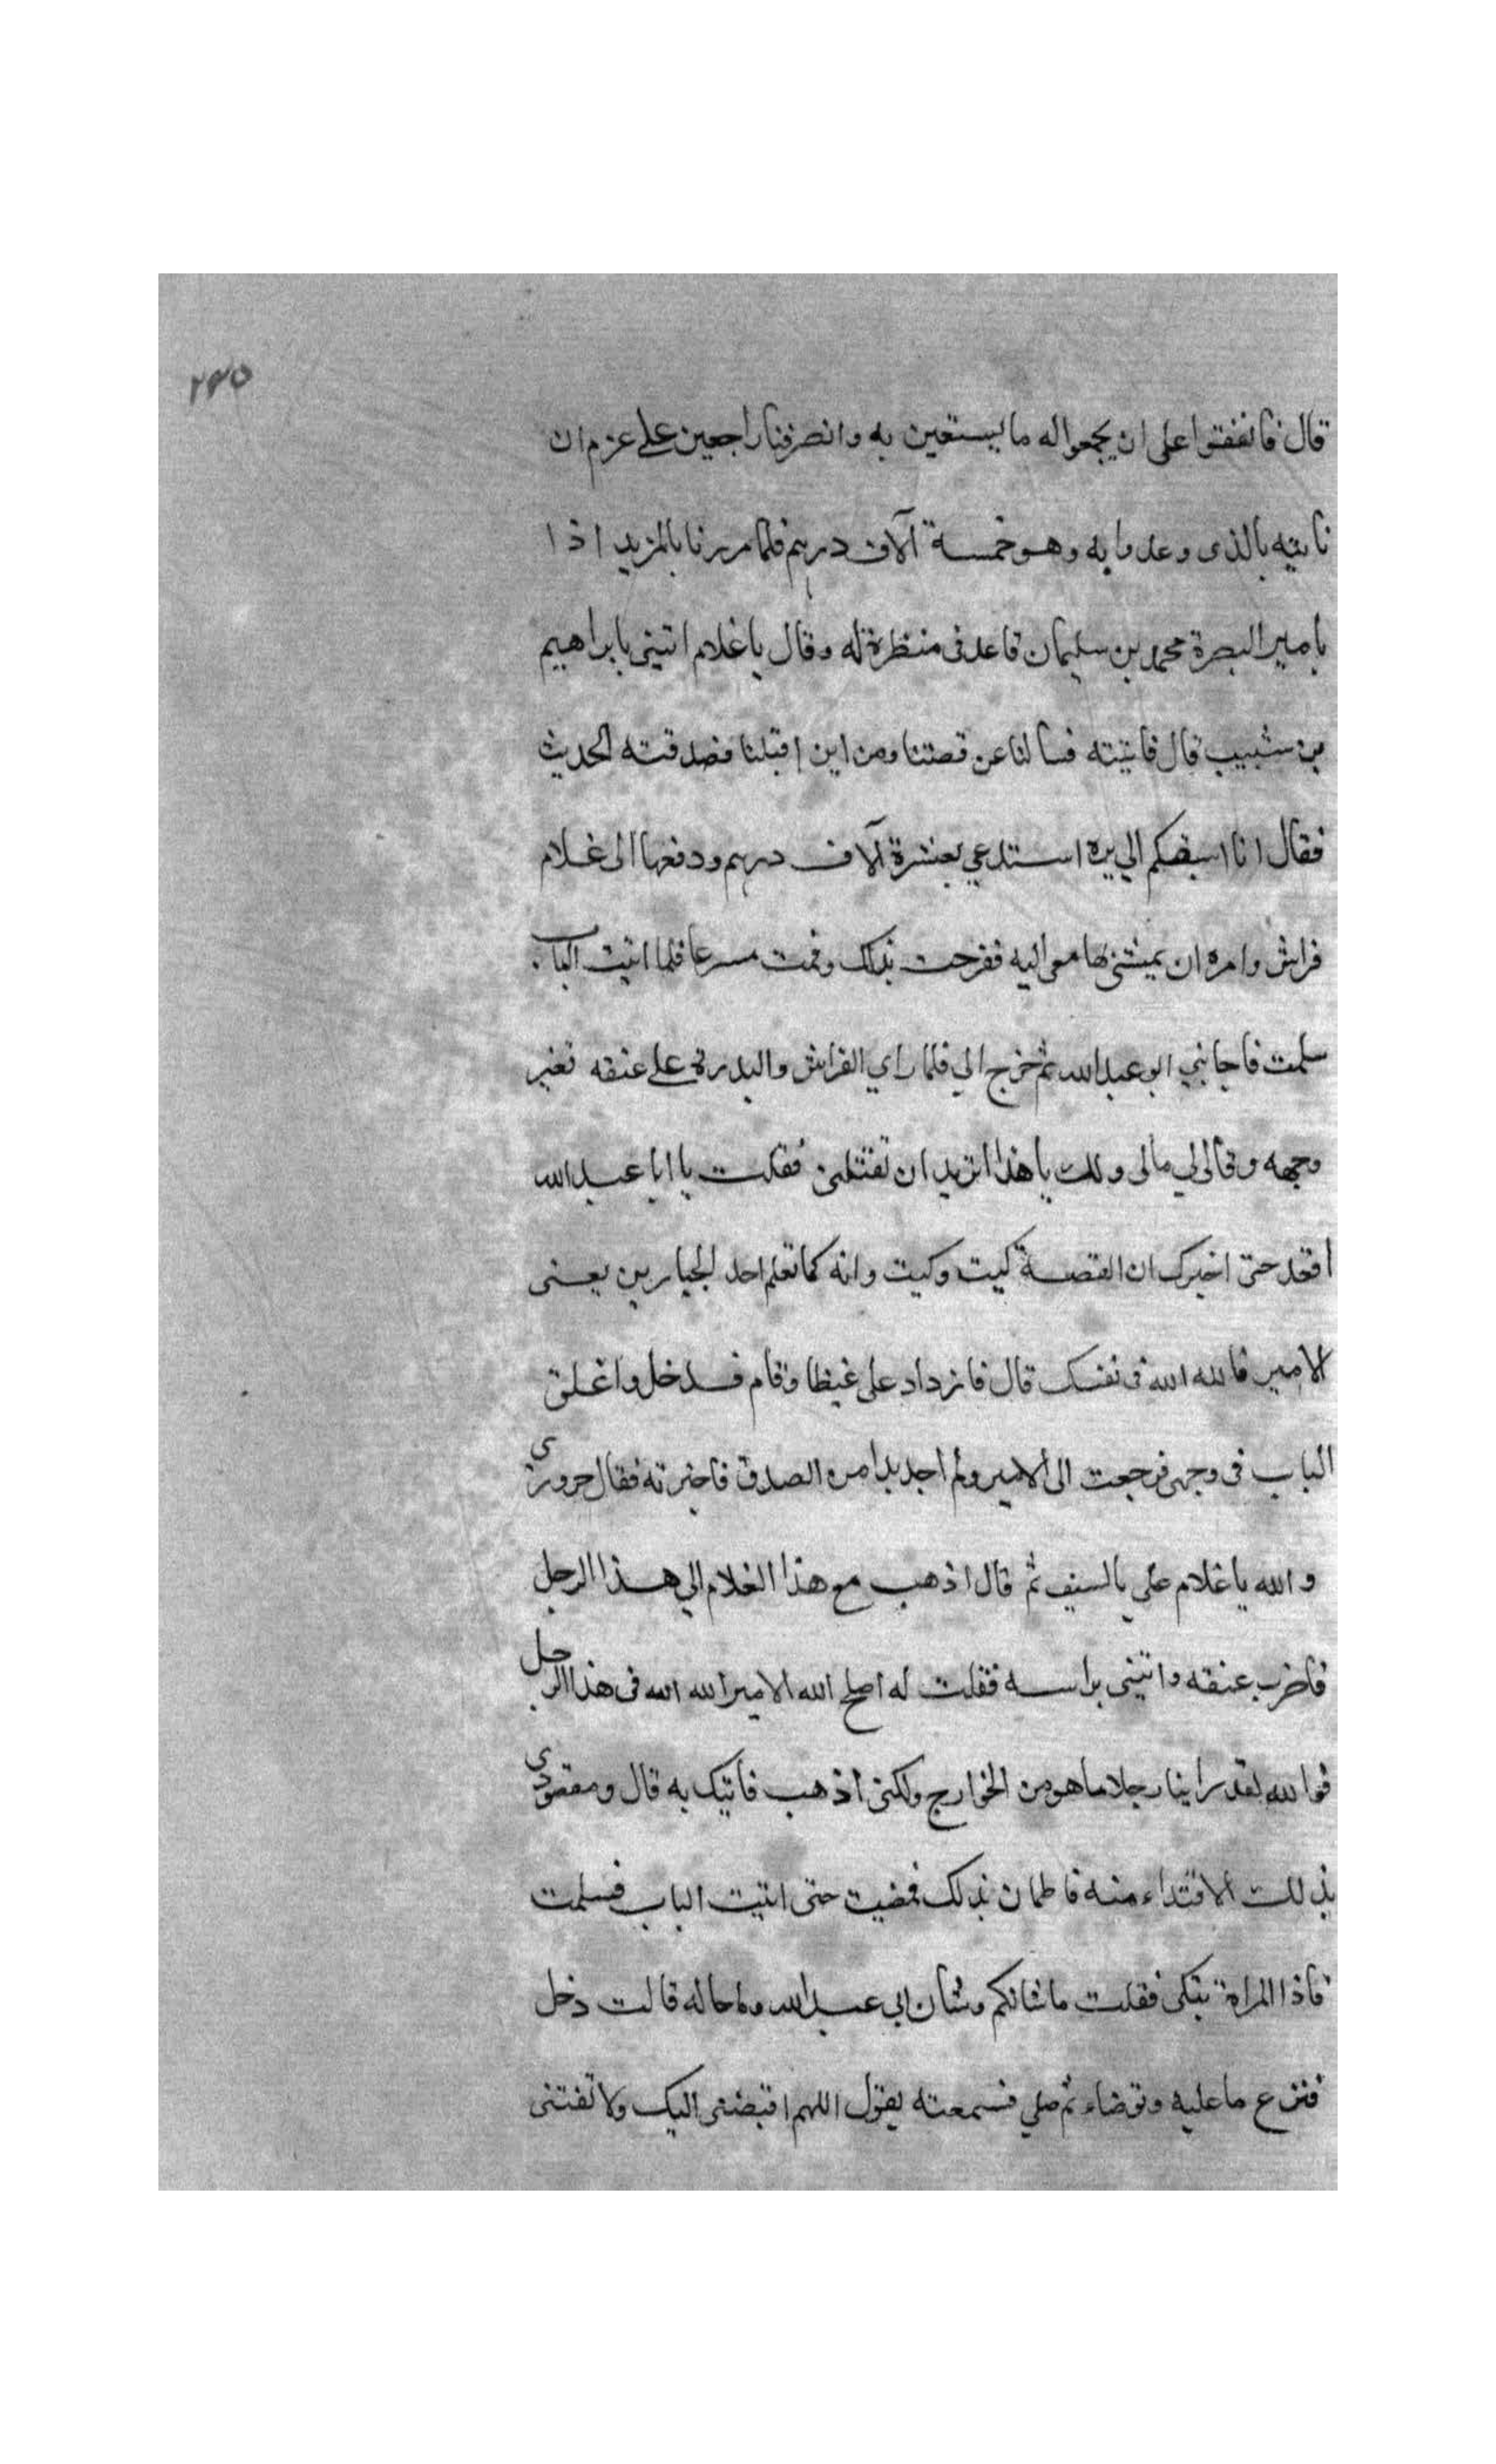 ٢٤٥
قال فاتفقتوا على ان يجمعوا له ما يستعين به وانصرفنا راجعين على عزم ان
ناتيه بالذى وعدوا به وهو خمسة آلاف درهم فلما مررنا بالمزيد اذا
بامير البصرة محمد بن سليمان قاعد فى منظرة له وقال يا غلام ائتينى بابراهيم
بن شبيب قال فاتيته فسالنا عن قصتنا ومن اين اقبلنا فصدقته الحديث
فقال انا اسبقكم الي بره استدعي بعشرة آلاف درهم ودفعها الى غلام
فراش وامره ان يمشى بها معى اليه ففرحت بذلك وقمت مسرعا فلما اتيت الباب
سلمت فاجابني ابو عبد الله ثم خرج الي فلما راي الفراش والبدرة على عنقه تغير
وجهه وقال لي مالى ولك يا هذا اتريد ان تفتنى فقلت يا ابا عبد الله
اقعد حتى اخبرك ان القصة كيت وكيت وانه كما تعلم احد الجبارين يعنى
الامير فالله الله فى نفسك قال فازداد على غيظا وقام فدخل واغلق
الباب فى وجهى فرجعت الى الامير ولم اجد بدا من الصدق فاخبرته فقال حرورى
والله يا غلام علي بالسيف ثم قال اذهب مع هذا الغلام الي هذا الرجل
فاضرب عنقه وائتينى براسه فقلت له اصلح الله الامير الله الله فى هذا الرجل
فوالله لقد راينا رجلا ما هو من الخوارج ولكنى اذهب فاتيك به قال ومقصودى
بذلك الافتداء منه فاطمان بذلك فمضيت حتى اتيت الباب فسلمت
فاذا المراة تبكى فقلت ما شانكم وشان ابي عبد الله وما حاله قالت دخل
فنزع ما عليه وتوضاء ثم صلي فسمعته يقول اللهم اقبضنى اليك ولا تفتنى